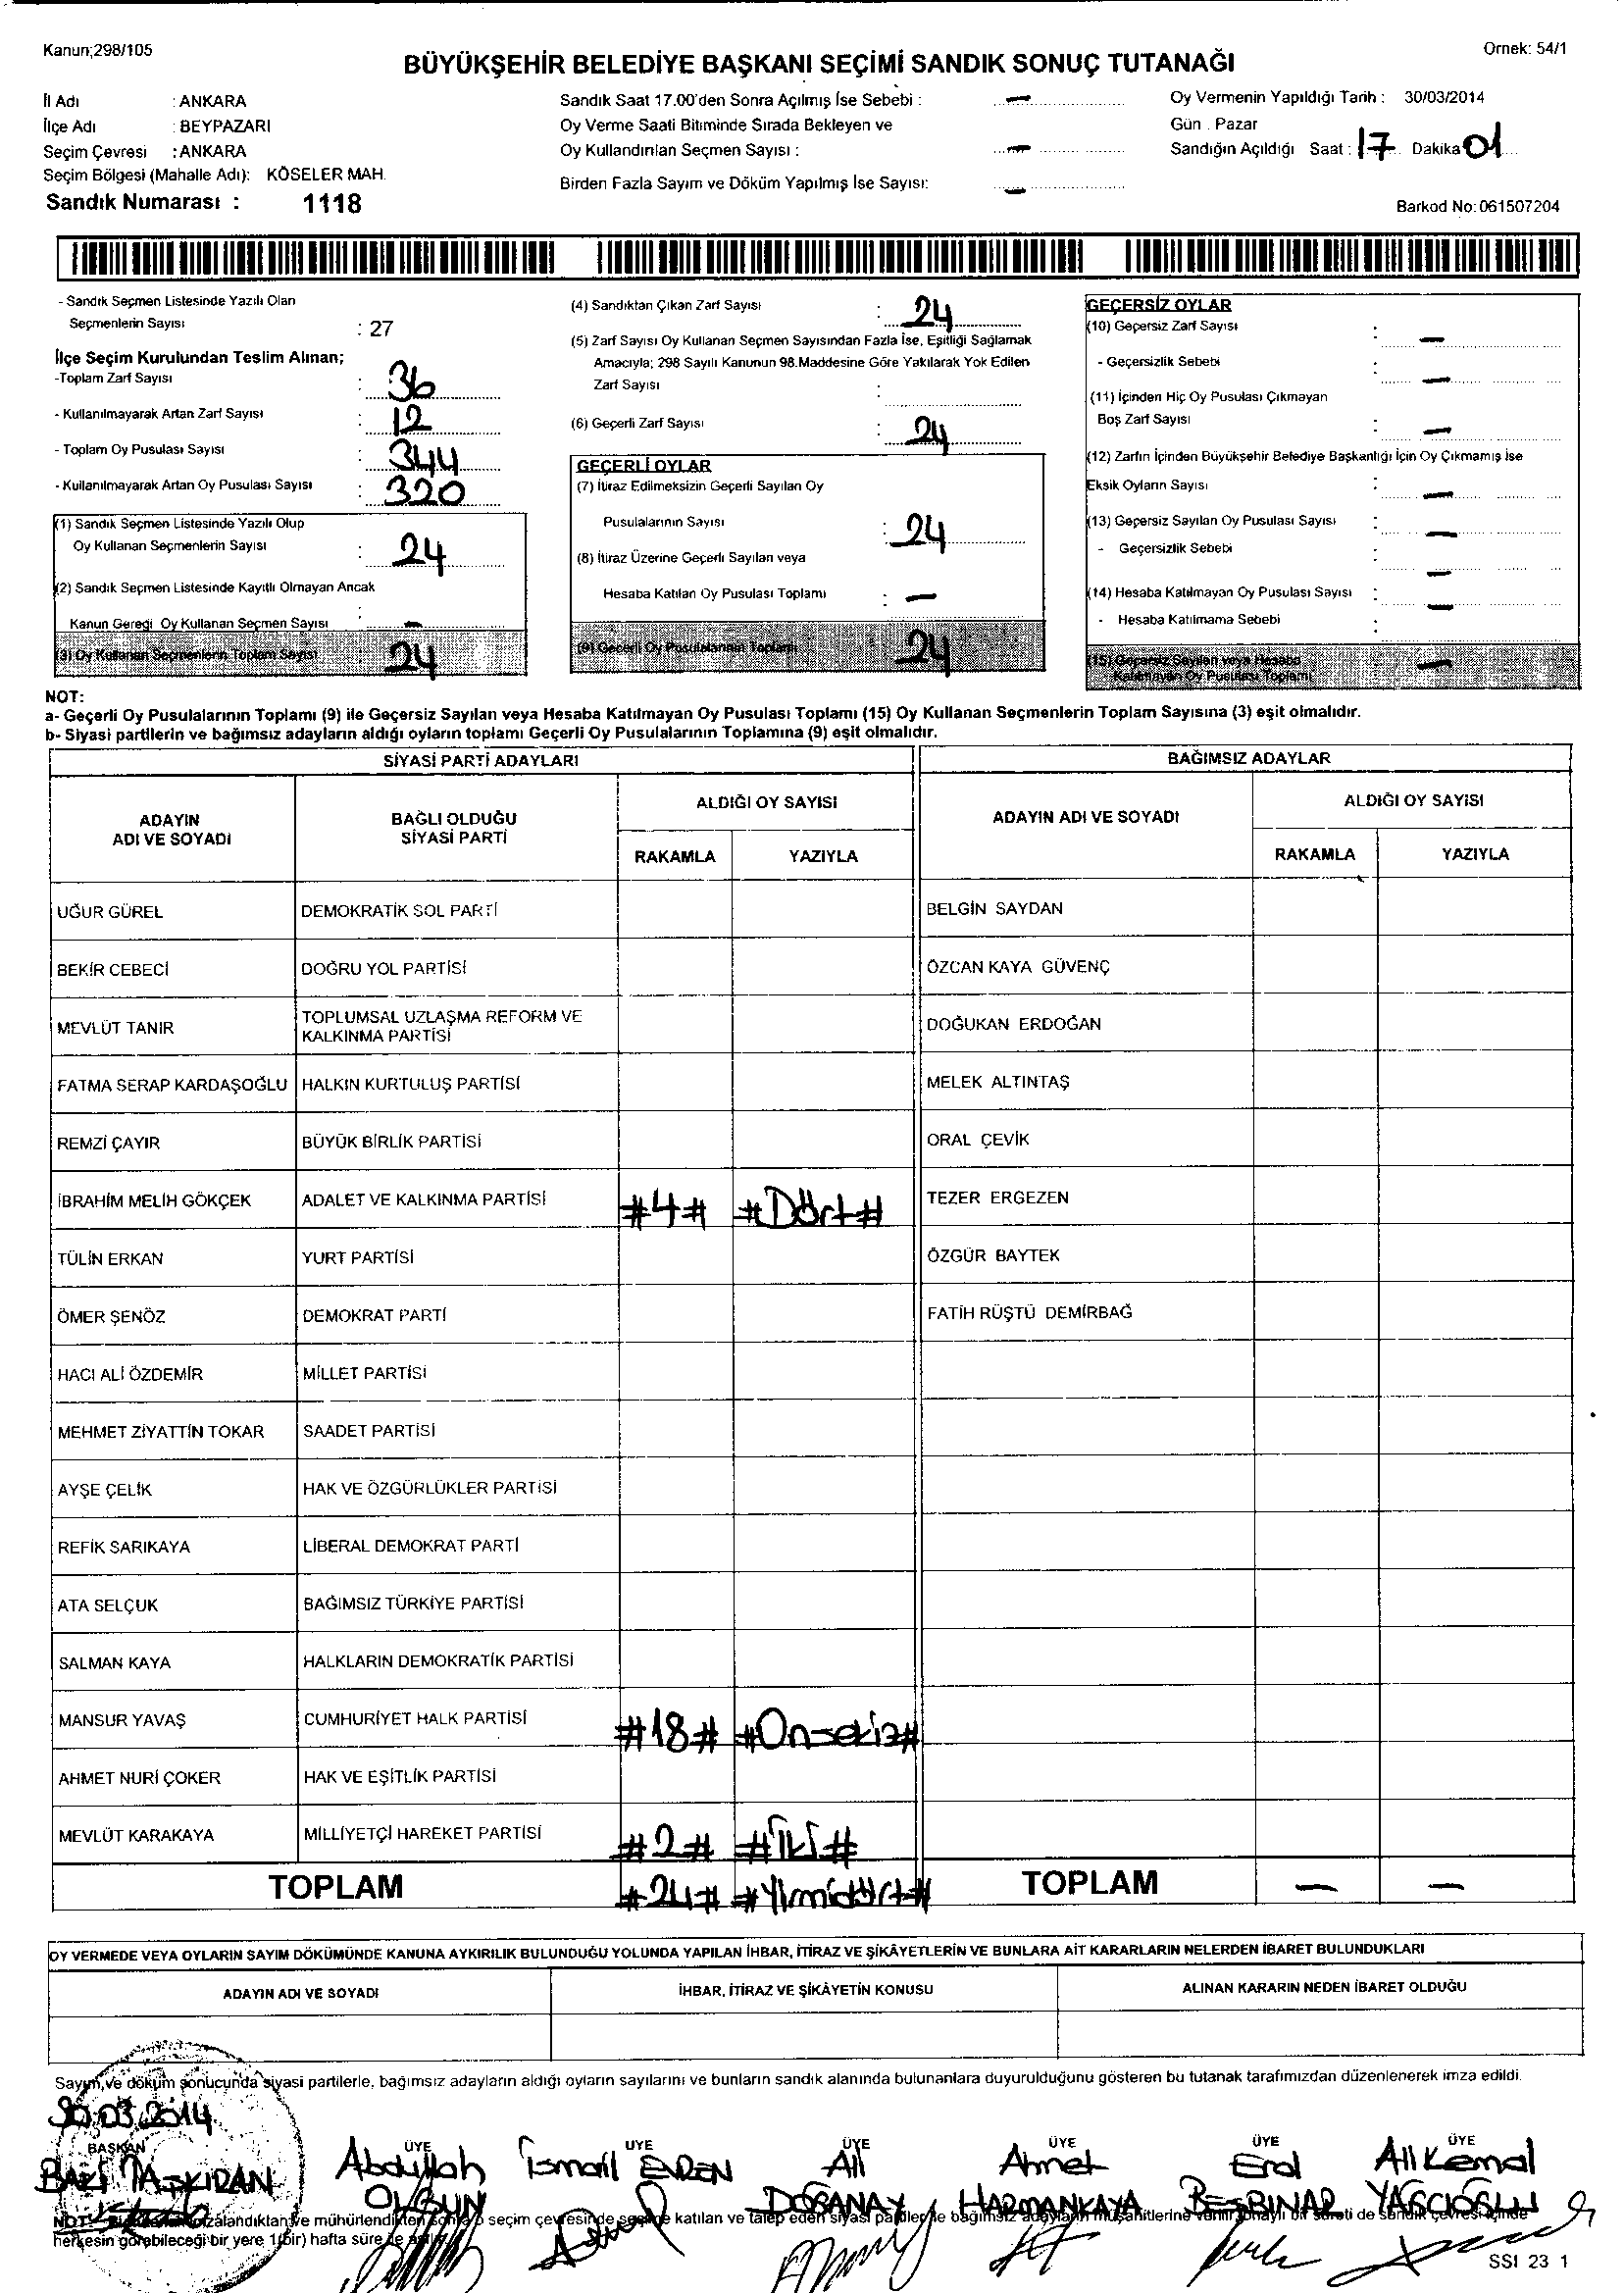 Kanun;298/105
Örnek: 54/1
BÜYÜKŞEHİR BELEDİYE BAŞKANI SEÇİMİ SANDIK SONUÇ TUTANAĞI
İl Adı : ANKARA
İlçe Adı : BEYPAZARI
Seçim Çevresi : ANKARA
Seçim Bölgesi (Mahalle Adı): KÖSELER MAH.
Sandık Numarası : 1118
Sandık Saat 17.00'den Sonra Açılmış İse Sebebi : —
Oy Verme Saati Bitiminde Sırada Bekleyen ve
Oy Kullandırılan Seçmen Sayısı : —
Birden Fazla Sayım ve Döküm Yapılmış İse Sayısı: —
Oy Vermenin Yapıldığı Tarih : 30/03/2014
Gün : Pazar
Sandığın Açıldığı Saat : 17 Dakika 01
Barkod No:061507204
- Sandık Seçmen Listesinde Yazılı Olan
Seçmenlerin Sayısı : 27
İlçe Seçim Kurulundan Teslim Alınan;
-Toplam Zarf Sayısı : 36
- Kullanılmayarak Artan Zarf Sayısı : 12
- Toplam Oy Pusulası Sayısı : 344
- Kullanılmayarak Artan Oy Pusulası Sayısı : 320
(1) Sandık Seçmen Listesinde Yazılı Olup
Oy Kullanan Seçmenlerin Sayısı : 24
(2) Sandık Seçmen Listesinde Kayıtlı Olmayan Ancak
Kanun Gereği Oy Kullanan Seçmen Sayısı : —
(3) Oy Kullanan Seçmenlerin Toplam Sayısı 24
(4) Sandıktan Çıkan Zarf Sayısı : 24
(5) Zarf Sayısı Oy Kullanan Seçmen Sayısından Fazla İse, Eşitliği Sağlamak
Amacıyla; 298 Sayılı Kanunun 98.Maddesine Göre Yakılarak Yok Edilen
Zarf Sayısı :
(6) Geçerli Zarf Sayısı : 24
GEÇERLİ OYLAR
(7) İtiraz Edilmeksizin Geçerli Sayılan Oy
Pusulalarının Sayısı : 24
(8) İtiraz Üzerine Geçerli Sayılan veya
Hesaba Katılan Oy Pusulası Toplamı : —
(9) Geçerli Oy Pusulalarının Toplamı 24
GEÇERSİZ OYLAR
(10) Geçersiz Zarf Sayısı : —
- Geçersizlik Sebebi : —
(11) İçinden Hiç Oy Pusulası Çıkmayan
Boş Zarf Sayısı : —
(12) Zarfın İçinden Büyükşehir Belediye Başkanlığı İçin Oy Çıkmamış İse
Eksik Oyların Sayısı : —
(13) Geçersiz Sayılan Oy Pusulası Sayısı : —
- Geçersizlik Sebebi : —
(14) Hesaba Katılmayan Oy Pusulası Sayısı : —
- Hesaba Katılmama Sebebi :
(15) Geçersiz Sayılan veya Hesaba
Katılmayan Oy Pusulası Toplamı —
NOT:
a- Geçerli Oy Pusulalarının Toplamı (9) ile Geçersiz Sayılan veya Hesaba Katılmayan Oy Pusulası Toplamı (15) Oy Kullanan Seçmenlerin Toplam Sayısına (3) eşit olmalıdır.
b- Siyasi partilerin ve bağımsız adayların aldığı oyların toplamı Geçerli Oy Pusulalarının Toplamına (9) eşit olmalıdır.
SİYASİ PARTİ ADAYLARI
ADAYIN
ADI VE SOYADI
BAĞLI OLDUĞU
SİYASİ PARTİ
ALDIĞI OY SAYISI
RAKAMLA YAZIYLA
UĞUR GÜREL DEMOKRATİK SOL PARTİ
BEKİR CEBECİ DOĞRU YOL PARTİSİ
MEVLÜT TANIR TOPLUMSAL UZLAŞMA REFORM VE
KALKINMA PARTİSİ
FATMA SERAP KARDAŞOĞLU HALKIN KURTULUŞ PARTİSİ
REMZİ ÇAYIR BÜYÜK BİRLİK PARTİSİ
İBRAHİM MELİH GÖKÇEK ADALET VE KALKINMA PARTİSİ #4# #Dört#
TÜLİN ERKAN YURT PARTİSİ
ÖMER ŞENÖZ DEMOKRAT PARTİ
HACI ALİ ÖZDEMİR MİLLET PARTİSİ
MEHMET ZİYATTİN TOKAR SAADET PARTİSİ
AYŞE ÇELİK HAK VE ÖZGÜRLÜKLER PARTİSİ
REFİK SARIKAYA LİBERAL DEMOKRAT PARTİ
ATA SELÇUK BAĞIMSIZ TÜRKİYE PARTİSİ
SALMAN KAYA HALKLARIN DEMOKRATİK PARTİSİ
MANSUR YAVAŞ CUMHURİYET HALK PARTİSİ #18# #Onsekiz#
AHMET NURİ ÇOKER HAK VE EŞİTLİK PARTİSİ
MEVLÜT KARAKAYA MİLLİYETÇİ HAREKET PARTİSİ #2# #İki#
TOPLAM #24# #Yirmidört#
BAĞIMSIZ ADAYLAR
ADAYIN ADI VE SOYADI
ALDIĞI OY SAYISI
RAKAMLA YAZIYLA
BELGİN SAYDAN
ÖZCAN KAYA GÜVENÇ
DOĞUKAN ERDOĞAN
MELEK ALTINTAŞ
ORAL ÇEVİK
TEZER ERGEZEN
ÖZGÜR BAYTEK
FATİH RÜŞTÜ DEMİRBAĞ
TOPLAM — —
OY VERMEDE VEYA OYLARIN SAYIM DÖKÜMÜNDE KANUNA AYKIRILIK BULUNDUĞU YOLUNDA YAPILAN İHBAR, İTİRAZ VE ŞİKÂYETLERİN VE BUNLARA AİT KARARLARIN NELERDEN İBARET BULUNDUKLARI
ADAYIN ADI VE SOYADI İHBAR, İTİRAZ VE ŞİKÂYETİN KONUSU ALINAN KARARIN NEDEN İBARET OLDUĞU
Sayım ve döküm sonucunda siyasi partilerle, bağımsız adayların aldığı oyların sayılarını ve bunların sandık alanında bulunanlara duyurulduğunu gösteren bu tutanak tarafımızdan düzenlenerek imza edildi.
30.03.2014
BAŞKAN ÜYE ÜYE ÜYE ÜYE ÜYE ÜYE
BAKİ TAŞKIRAN
Abdullah OLGUN
İsmail EVREN
Ali DOĞANAY
Ahmet HARMANKAYA
Erol BEŞBINAR
Ali Kemal YAĞCIOĞLU
NOT: seçim çevresinde seçime katılan ve talep eden siyasi partiler ile bağımsız adayların müşahitlerine verilir, onaylı bir sureti de sandık çevresi içinde
herkesin görebileceği bir yere 1(bir) hafta süre ile
SSI 23 1